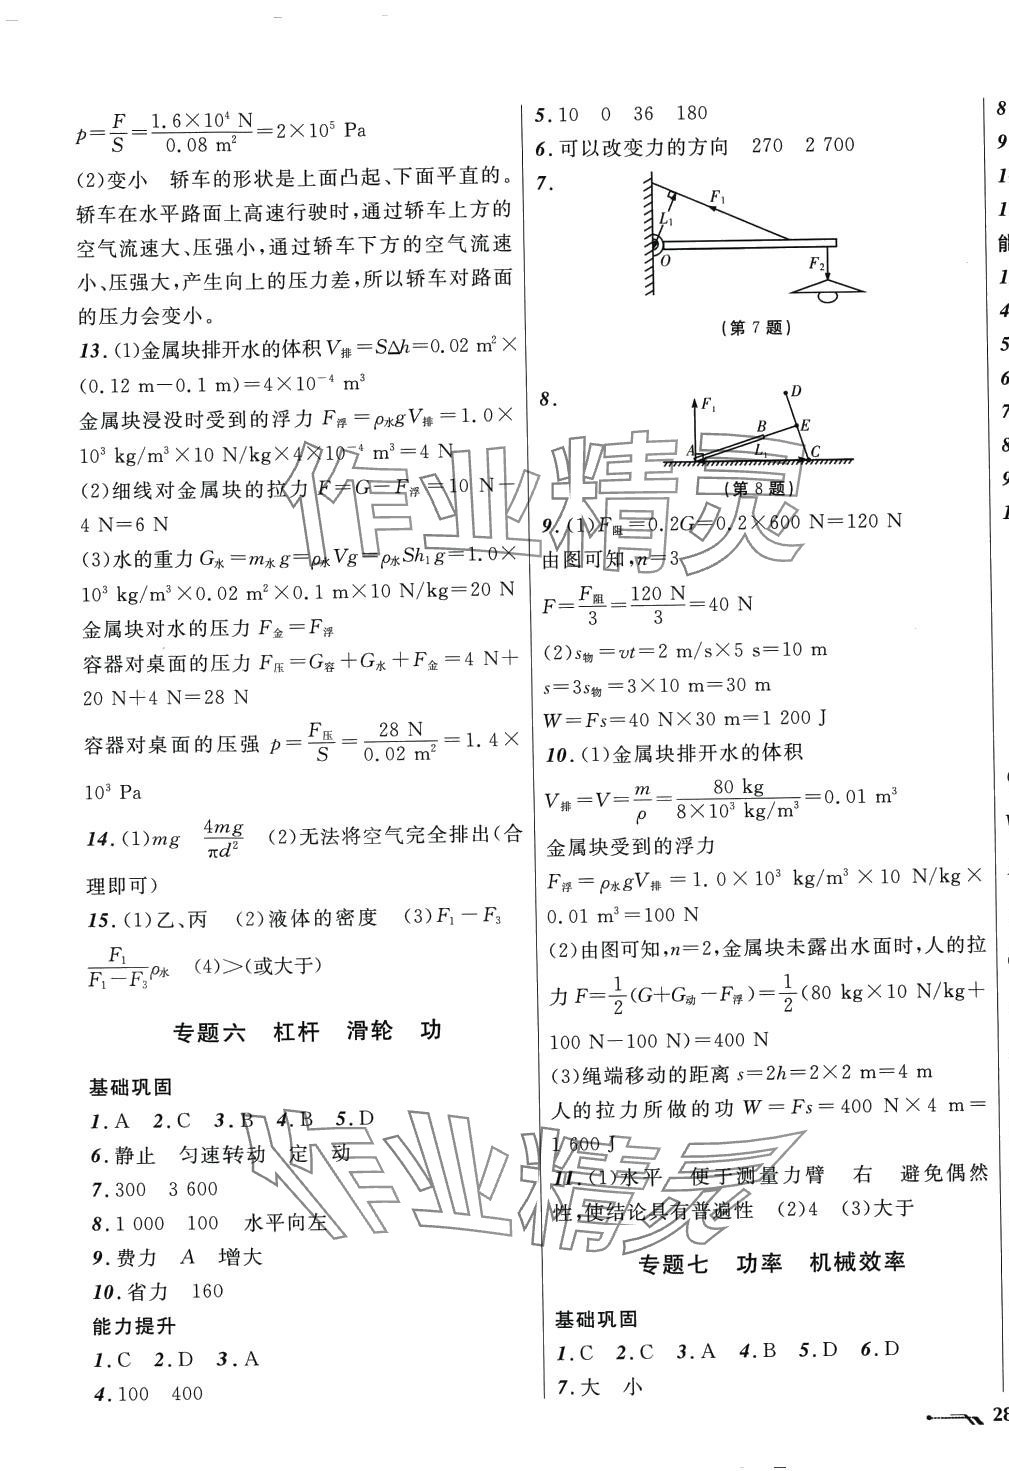 p=F/S=1.6×10⁴ N/0.08 m²=2×10⁵ Pa
(2)变小　轿车的形状是上面凸起、下面平直的。
轿车在水平路面上高速行驶时,通过轿车上方的
空气流速大、压强小,通过轿车下方的空气流速
小、压强大,产生向上的压力差,所以轿车对路面
的压力会变小。
13.(1)金属块排开水的体积V排=SΔh=0.02 m²×
(0.12 m−0.1 m)=4×10⁻⁴ m³
金属块浸没时受到的浮力 F浮=ρ水gV排=1.0×
10³ kg/m³×10 N/kg×4×10⁻⁴ m³=4 N
(2)细线对金属块的拉力 F=G−F浮=10 N−
4 N=6 N
(3)水的重力 G水=m水g=ρ水Vg=ρ水Sh₁g=1.0×
10³ kg/m³×0.02 m²×0.1 m×10 N/kg=20 N
金属块对水的压力 F金=F浮
容器对桌面的压力 F压=G容+G水+F金=4 N+
20 N+4 N=28 N
容器对桌面的压强 p=F压/S=28 N/0.02 m²=1.4×
10³ Pa
14.(1)mg　4mg/πd²　(2)无法将空气完全排出(合
理即可)
15.(1)乙、丙　(2)液体的密度　(3)F₁−F₃
F₁/(F₁−F₃)ρ水　(4)>(或大于)
专题六　杠杆　滑轮　功
基础巩固
1.A　2.C　3.B　4.B　5.D
6.静止　匀速转动　定　动
7.300　3 600
8.1 000　100　水平向左
9.费力　A　增大
10.省力　160
能力提升
1.C　2.D　3.A
4.100　400
5.10　0　36　180
6.可以改变力的方向　270　2 700
7.
F₁
L₁
O
F₂
(第7题)
8.
D
F₁
B
E
A
L₁
C
(第8题)
9.(1)F阻=0.2G=0.2×600 N=120 N
由图可知,n=3
F=F阻/3=120 N/3=40 N
(2)s物=vt=2 m/s×5 s=10 m
s=3s物=3×10 m=30 m
W=Fs=40 N×30 m=1 200 J
10.(1)金属块排开水的体积
V排=V=m/ρ=80 kg/(8×10³ kg/m³)=0.01 m³
金属块受到的浮力
F浮=ρ水gV排=1.0×10³ kg/m³×10 N/kg×
0.01 m³=100 N
(2)由图可知,n=2,金属块未露出水面时,人的拉
力 F=1/2(G+G动−F浮)=1/2(80 kg×10 N/kg+
100 N−100 N)=400 N
(3)绳端移动的距离 s=2h=2×2 m=4 m
人的拉力所做的功 W=Fs=400 N×4 m=
1 600 J
11.(1)水平　便于测量力臂　右　避免偶然
性,使结论具有普遍性　(2)4　(3)大于
专题七　功率　机械效率
基础巩固
1.C　2.C　3.A　4.B　5.D　6.D
7.大　小
28
作业精灵
作业精灵